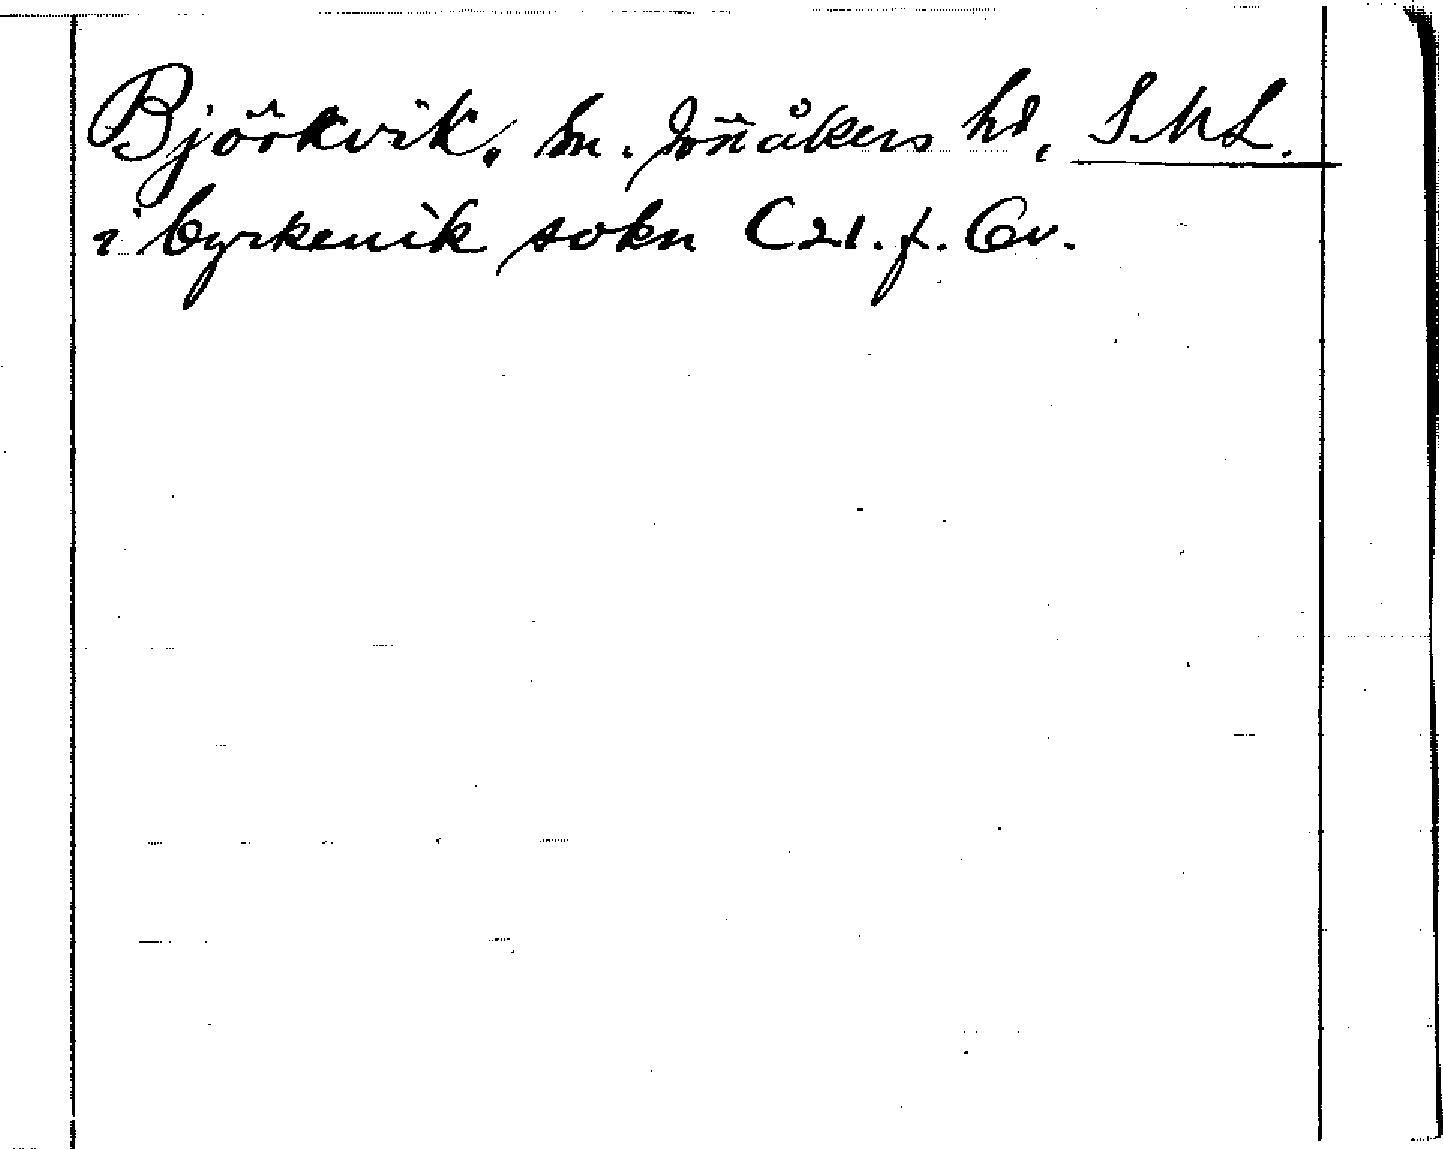 Björkvik, sn. Jönåkers hd, SML.
i byrkeuik sokn C 21. f. 6v.